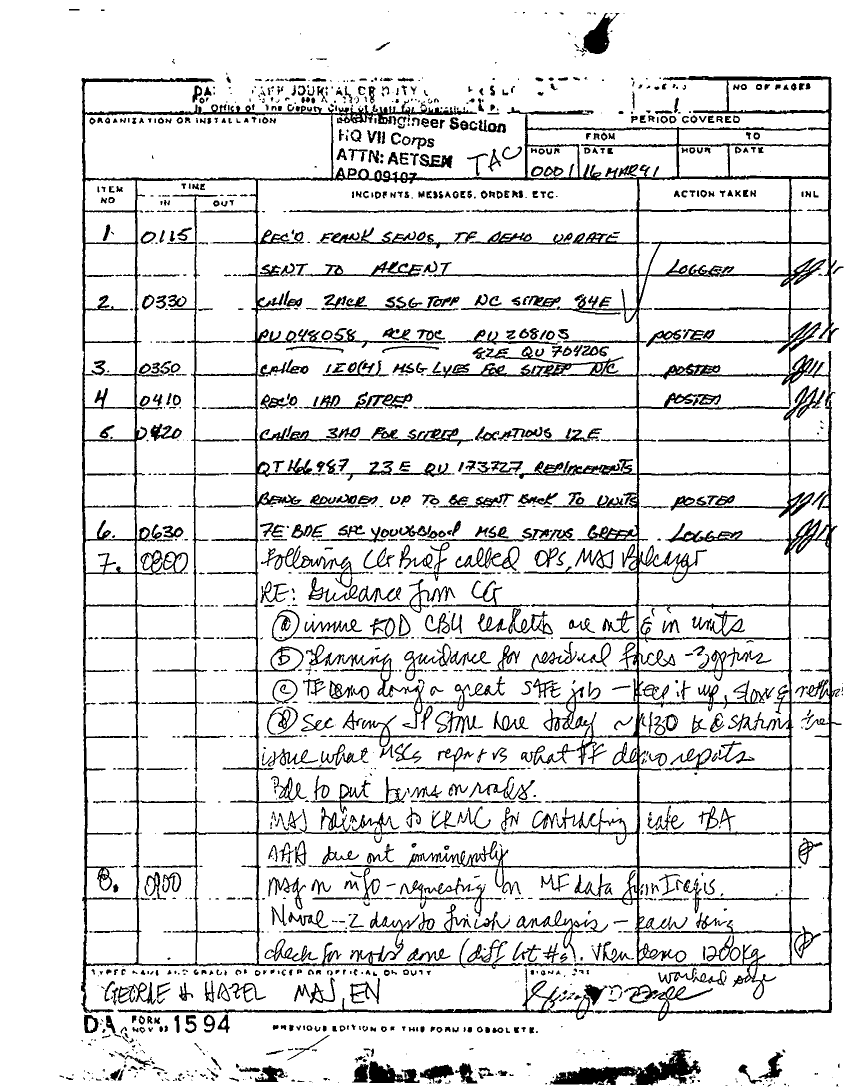 DAILY STAFF JOURNAL OR DUTY OFFICER'S LOG
PAGE NO
1
NO. OF PAGES
ORGANIZATION OR INSTALLATION
Engineer Section
HQ VII Corps
ATTN: AETSEN
APO 09107
TAC
PERIOD COVERED
FROM
TO
HOUR
DATE
HOUR
DATE
0001
16 MAR 91
ITEM NO
TIME
IN
OUT
INCIDENTS, MESSAGES, ORDERS, ETC.
ACTION TAKEN
INL
1 0115 REC'D FRANK SENDS, TF DEMO UPDATE
SENT TO ARCENT LOGGED
2. 0330 CALLED 2ACR SSG TOPP NC SITREP 84E
PU 048058, ACR TOC PU 208105 POSTED
82E QU 704206
3. 0350 CALLED 1ID(M) MSG LYLES FOR SITREP N/C POSTED
4 0410 REC'D 1AD SITREP POSTED
5. 0420 CALLED 3AD FOR SITREP, LOCATIONS 12E
QT 166987, 23E QU 173727, REPLACEMENTS
BEING ROUNDED UP TO BE SENT BACK TO UNITS POSTED
6. 0630 7E BDE SFC YOUNGBLOOD MSR STATUS GREEN LOGGED
7. 0800 Following CG Brief called OPS, MAJ
RE: Guidance from CG
(a) EOD CBU leaflets are out & in units
(b) Planning guidance for residual forces - 3 options
(c) TF Demo doing a great SAFE job - keep it up, slow &
(d) Sec Army JP Stone here today ~ 1130
issue what MSCs report vs what TF demo reports
Bde to put berms on roads.
MAJ to KKMC for contracting date TBA
AAR due out imminently
8. 0900 msg on info - requesting on MF data from Iraqis.
Naval - 2 days to finish analysis - each being
check for mods done (diff lot #s). Then demo 1200kg
warhead
TYPED NAME AND GRADE OF OFFICER OR OFFICIAL ON DUTY
SIGNATURE
GEORGE H. HAZEL MAJ, EN
DA FORM 1594
PREVIOUS EDITION OF THIS FORM IS OBSOLETE.